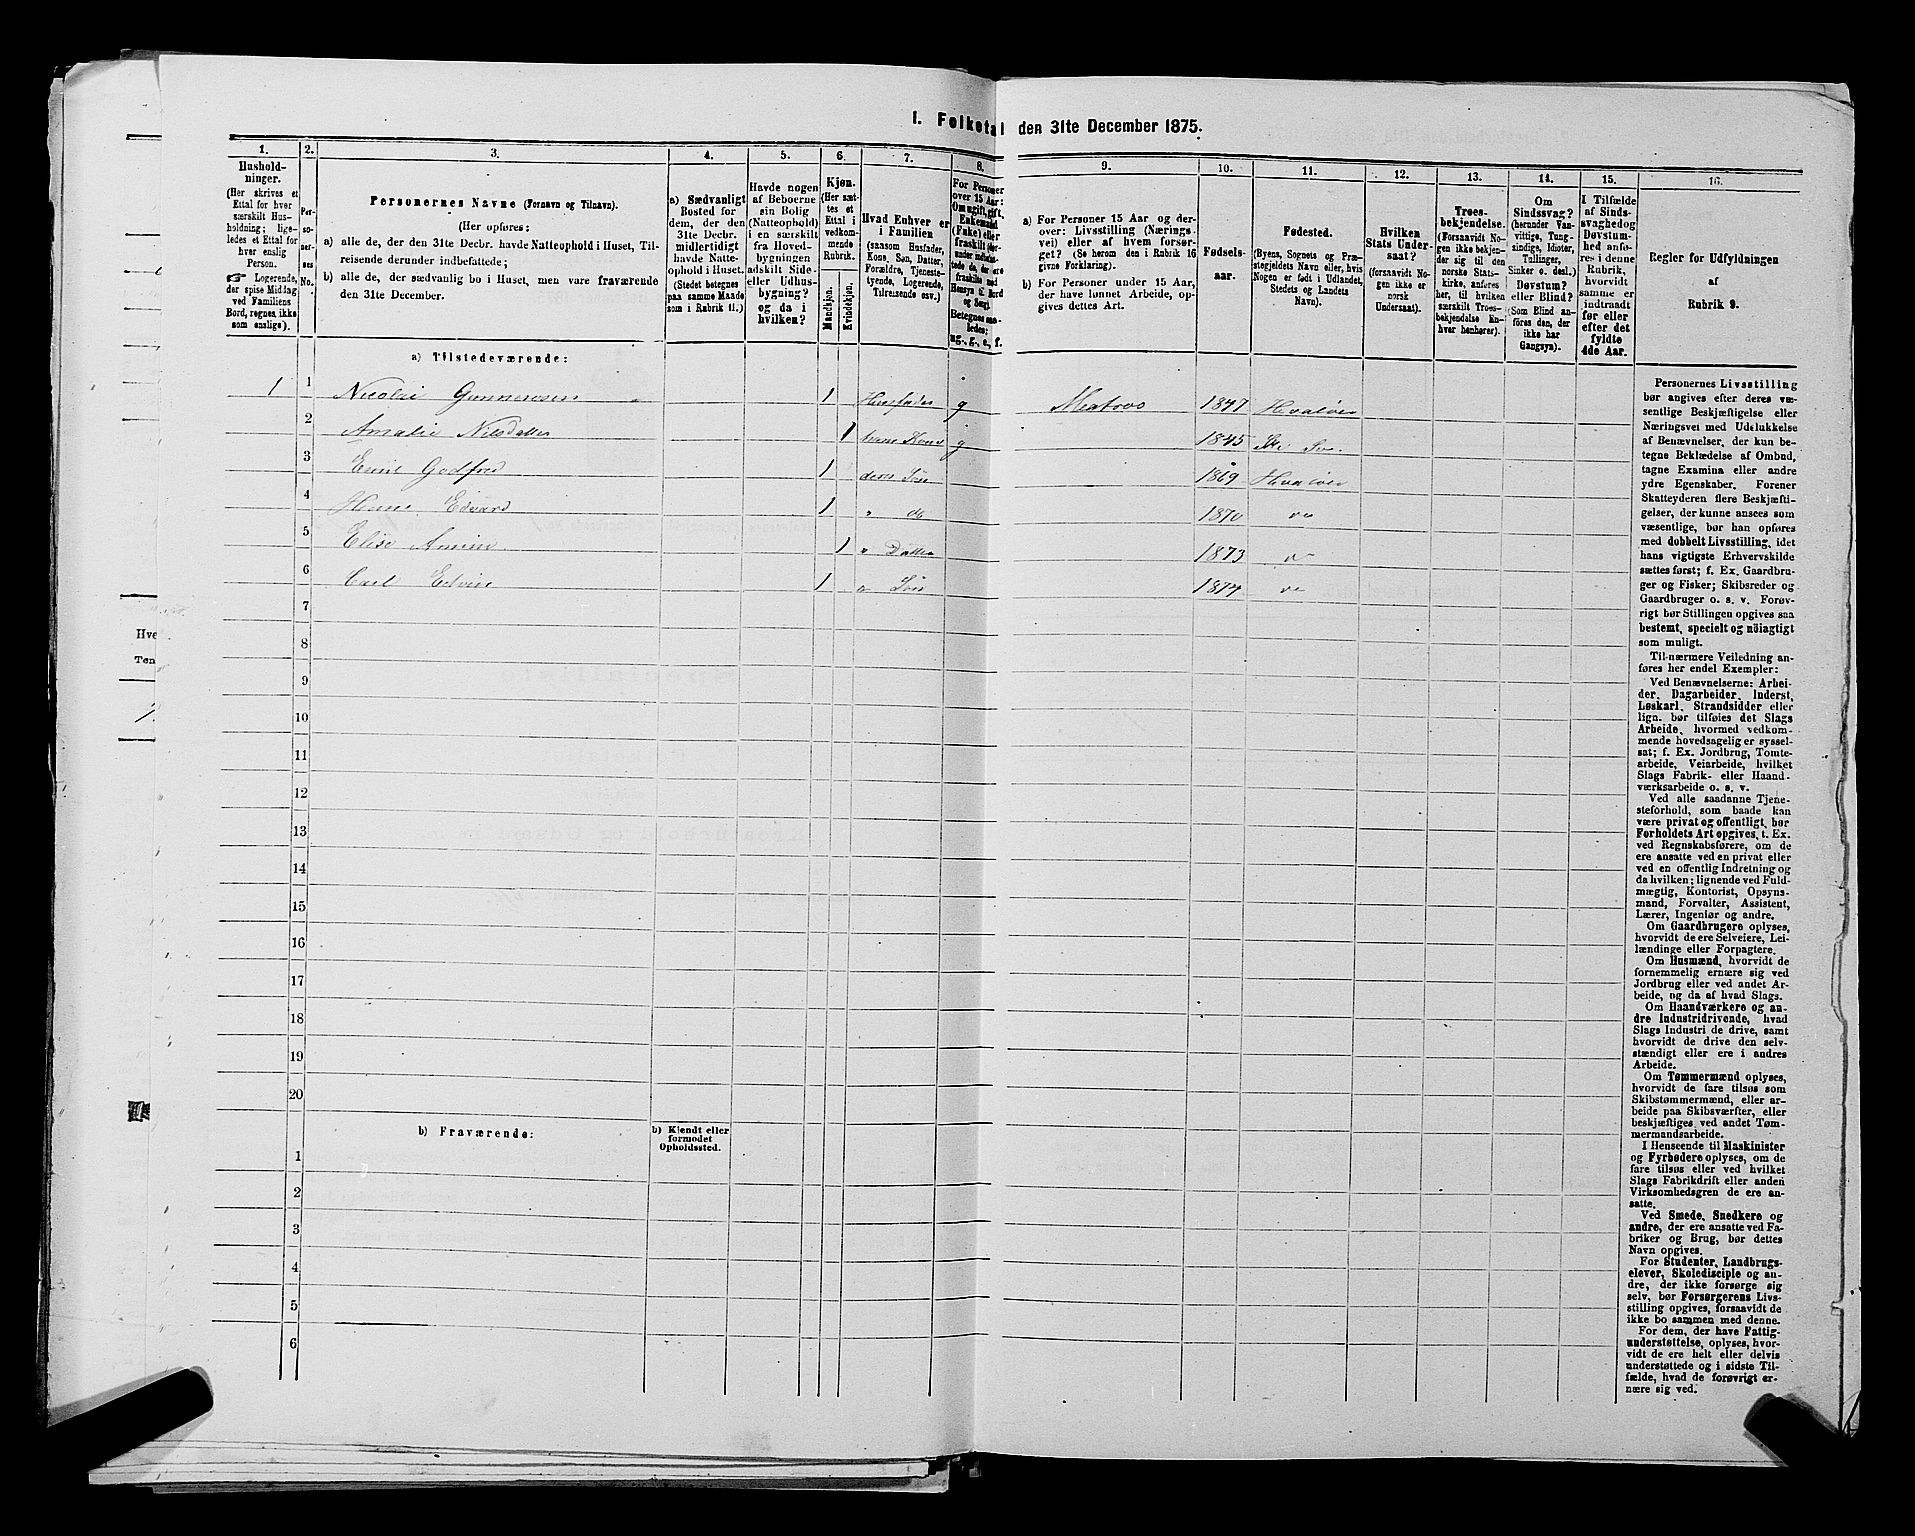 1. Folketal den 31te December 1875.
1.
Hushold-
ninger.
(Her skrives et
Ettal for hver
særskilt Hus-
holdning; lige-
ledes et Ettal for
hver enslig
Person.
☞ Logerende,
der spise Middag
ved Familiens
Bord, regnes ikke
som enslige).
2.
Per-
so-
ner-
nes
No.
3.
Personernes Navne (Fornavn og Tilnavn).
(Her opføres:
a) alle de, der den 31te Decbr. havde Natteophold i Huset, Til-
reisende derunder indbefattede;
b) alle de, der sædvanlig bo i Huset, men vare fraværende
den 31te December.
4.
a) Sædvanligt
Bosted for
dem, der den
31te Decbr.
midlertidigt
havde Natte-
ophold i Huset.
(Stedet betegnes
paa samme Maade
som i Rubrik 11.)
5.
Havde nogen
af Beboerne
sin Bolig
(Natteophold)
i en særskilt
fra Hoved-
bygningen
adskilt Side-
eller Udhus-
bygning?
og da i
hvilken?
6.
Kjøn.
(Her sæt-
tes et
Ettal i
vedkom-
mende
Rubrik.
Mandkjøn.
Kvindekjøn.
7.
Hvad Enhver er
i Familien
(saasom Husfader,
Kone, Søn, Datter,
Forældre, Tjeneste-
tyende, Logerende,
Tilreisende osv.)
8.
For Personer
over 15 Aar:
Om ugift, gift,
Enkemand
(Enke) eller
fraskilt
Betegnes saa-
ledes:
ug., g., e., f.
9.
a) For Personer 15 Aar og der-
over: Livsstilling (Nærings-
vei) eller af hvem forsør-
get? (Se herom den i Rubrik 16
givne Forklaring).
b) For Personer under 15 Aar,
der have lønnet Arbeide, op-
gives dettes Art.
10.
Fødsels-
aar.
11.
Fødested.
(Byens, Sognets og Præ-
stegjeldets Navn eller, hvis
Nogen er født i Udlandet,
Stedets og Landets
Navn).
12.
Hvilken
Stats Under-
saat?
(forsaavidt No-
gen ikke er
norsk
Undersaat).
13.
Troes-
bekjendelse.
(Forsaavidt No-
gen ikke bekjen-
der sig til den
norske Stats-
kirke, anføres
her, til hvilken
særskilt Troes-
bekjendelse En-
hver henhører).
14.
Om
Sindssvag?
(herunder Van-
vittige, Tung-
sindige, Idioter,
Tullinger,
Sinker o. desl.)
Døvstum?
eller Blind?
(Som Blind an-
føres den, der
ikke har
Gangsyn).
15.
I Tilfælde
af Sinds-
svaghed og
Døvstum-
hed anfø-
res i denne
Rubrik,
hvorvidt
samme er
indtraadt
før eller
efter det
fyldte
4de Aar.
16.
Regler for Udfyldningen
af
Rubrik 9.
a) Tilstedeværende:
1 1 Nicolai Gunnersen 1 Husfader g Matros 1847 Hvaløer
2 Amalie Nilsdatter 1 hans Kone g 1845
3 Emil Godfred 1 deres Søn 1869 Hvaløer
4 Hans Edvard 1 " do 1870 do
5 Elise 1 " Datter 1873 do
6 Carl Edvin 1 " Søn 1874 do
7
8
9
10
11
12
13
14
15
16
17
18
19
20
b) Fraværende:
b) Kjendt eller
formodet
Opholdssted.
1
2
3
4
5
6
Personernes Livsstilling
bør angives efter deres væ-
sentlige Beskjæftigelse eller
Næringsvei med Udelukkelse
af Benævnelser, der kun be-
tegne Beklædelse af Ombud,
tagne Examina eller andre
ydre Egenskaber. Forener
Skatteyderen flere Beskjæfti-
gelser, der kunne ansees som
væsentlige, bør han opføres
med dobbelt Livsstilling, idet
hans vigtigste Erhvervskilde
sættes først; f. Ex. Gaardbru-
ger og Fisker; Skibsreder og
Gaardbruger o. s. v. Forøv-
rigt bør Stillingen opgives saa
bestemt, specielt og nöiagtigt
som muligt.
Til nærmere Veiledning an-
føres her endel Exempler:
Ved Benævnelserne: Arbei-
der, Dagarbeider, Inderst,
Løskarl, Strandsidder eller
lign. bør tilføies det Slags
Arbeide, hvormed vedkom-
mende hovedsagelig er syssel-
sat; f. Ex. Jordbrug, Tomte-
arbeide, Veiarbeide, hvilket
Slags Fabrik- eller Haand-
værksarbeide o. s. v.
Ved alle saadanne Tjene-
steforhold, som baade kan
være privat og offentligt, bør
Forholdets Art opgives, t. Ex.
ved Regnskabsførere, om de
ere ansatte ved en privat eller
ved en offentlig Indretning og
da hvilken; lignende ved Fuld-
mægtig, Kontorist, Opsyns-
mand, Forvalter, Assistent,
Lærer, Ingeniør og andre.
Om Gaardbrugere oplyses,
hvorvidt de ere Selveiere, Lei-
lændinge eller Forpagtere.
Om Husmænd, hvorvidt de
fornemmelig ernære sig ved
Jordbrug eller ved andet Ar-
beide, og da af hvad Slags.
Om Haandværkere og an-
dre Industridrivende, hvad
Slags Industri de drive, samt
hvorvidt de drive den selv-
stændigt eller ere i andres
Arbeide.
Om Tømmermænd oplyses,
hvorvidt de fare tilsøs som
Skibstømmermænd, eller ar-
beide paa Skibsværfter, eller
beskjæftiges ved andet Tøm-
mermandsarbeide.
I Henseende til Maskinister
og Fyrbødere oplyses, om de
fare tilsøs eller ved hvilket
Slags Fabrikdrift eller anden
Virksomhedsgren de ere an-
satte.
Ved Smede, Snedkere og
andre, der ere ansatte ved Fa-
briker og Brug, bør dettes
Navn opgives.
For Studenter, Landbrugs-
elever, Skoledisciple og an-
dre, der ikke forsørge sig
selv, bør Forsørgerens Livs-
stilling opgives, forsaavidt de
ikke bo sammen med denne.
For dem, der have Fattig-
understøttelse, oplyses, hvor-
vidt de ere helt eller delvis
understøttede og i sidste Til-
fælde, hvad de forøvrigt er-
nære sig ved.